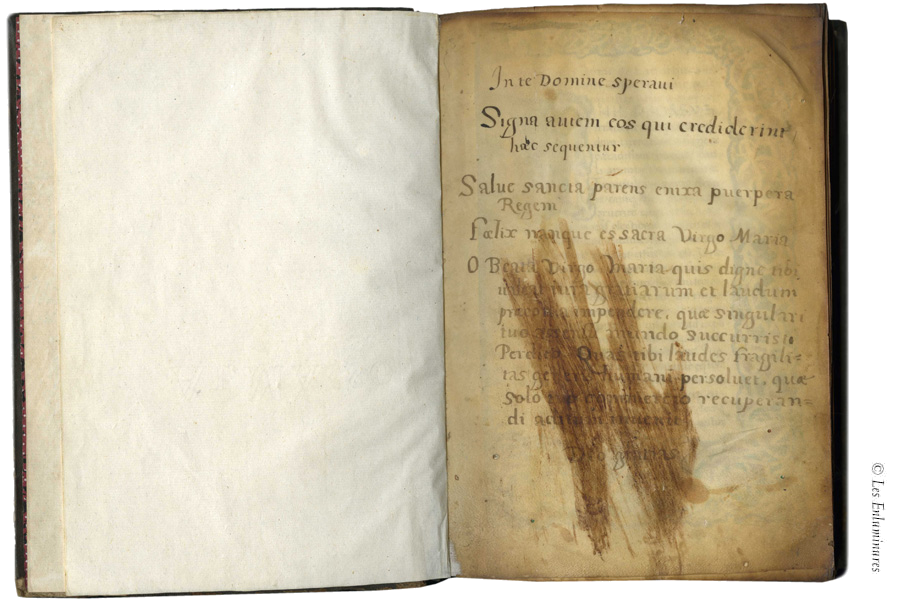 In te Domine speraui
Signa autem eos qui crediderint
hæc sequentur
Salue sancta parens enixa puerpera
Regem
Fœlix nanque es sacra Virgo Maria
O Beata Virgo Maria quis digne tibi
gratiarum et laudum
impendere, quæ singulari
tuo mundo succurristi
Perdito. Quas tibi laudes fragili=
tas generis humani persoluet, quæ
solo tuo commercio recuperan=
di
Deo gratias
© Les Enluminures